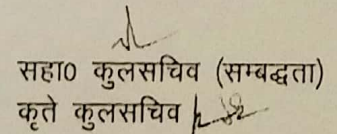 सहा0 कुलसचिव (सम्बद्धता)
कृते कुलसचिव